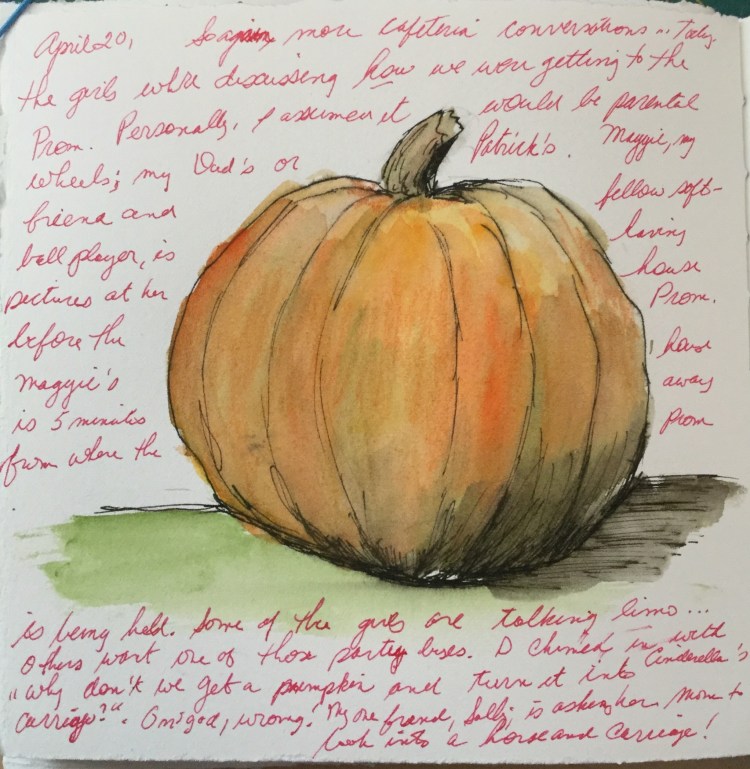 April 20, So again more cafeteria conversations ... Today
the girls where discussing how we were getting to the
Prom. Personally, I assumed it would be parental
wheels; my Dad's or Patrick's. Maggie, my
friend and fellow soft-
ball player, is having
pictures at her house
before the Prom.
Maggie's house
is 5 minutes away
from where the prom
is being held. Some of the girls are talking limo...
others want one of those party buses. I chimed in with
"why don't we get a pumpkin and turn it into Cinderella's
carriage?". Omigod, wrong! My one friend, Sally, is asking her mom to
look into a horse and carriage!